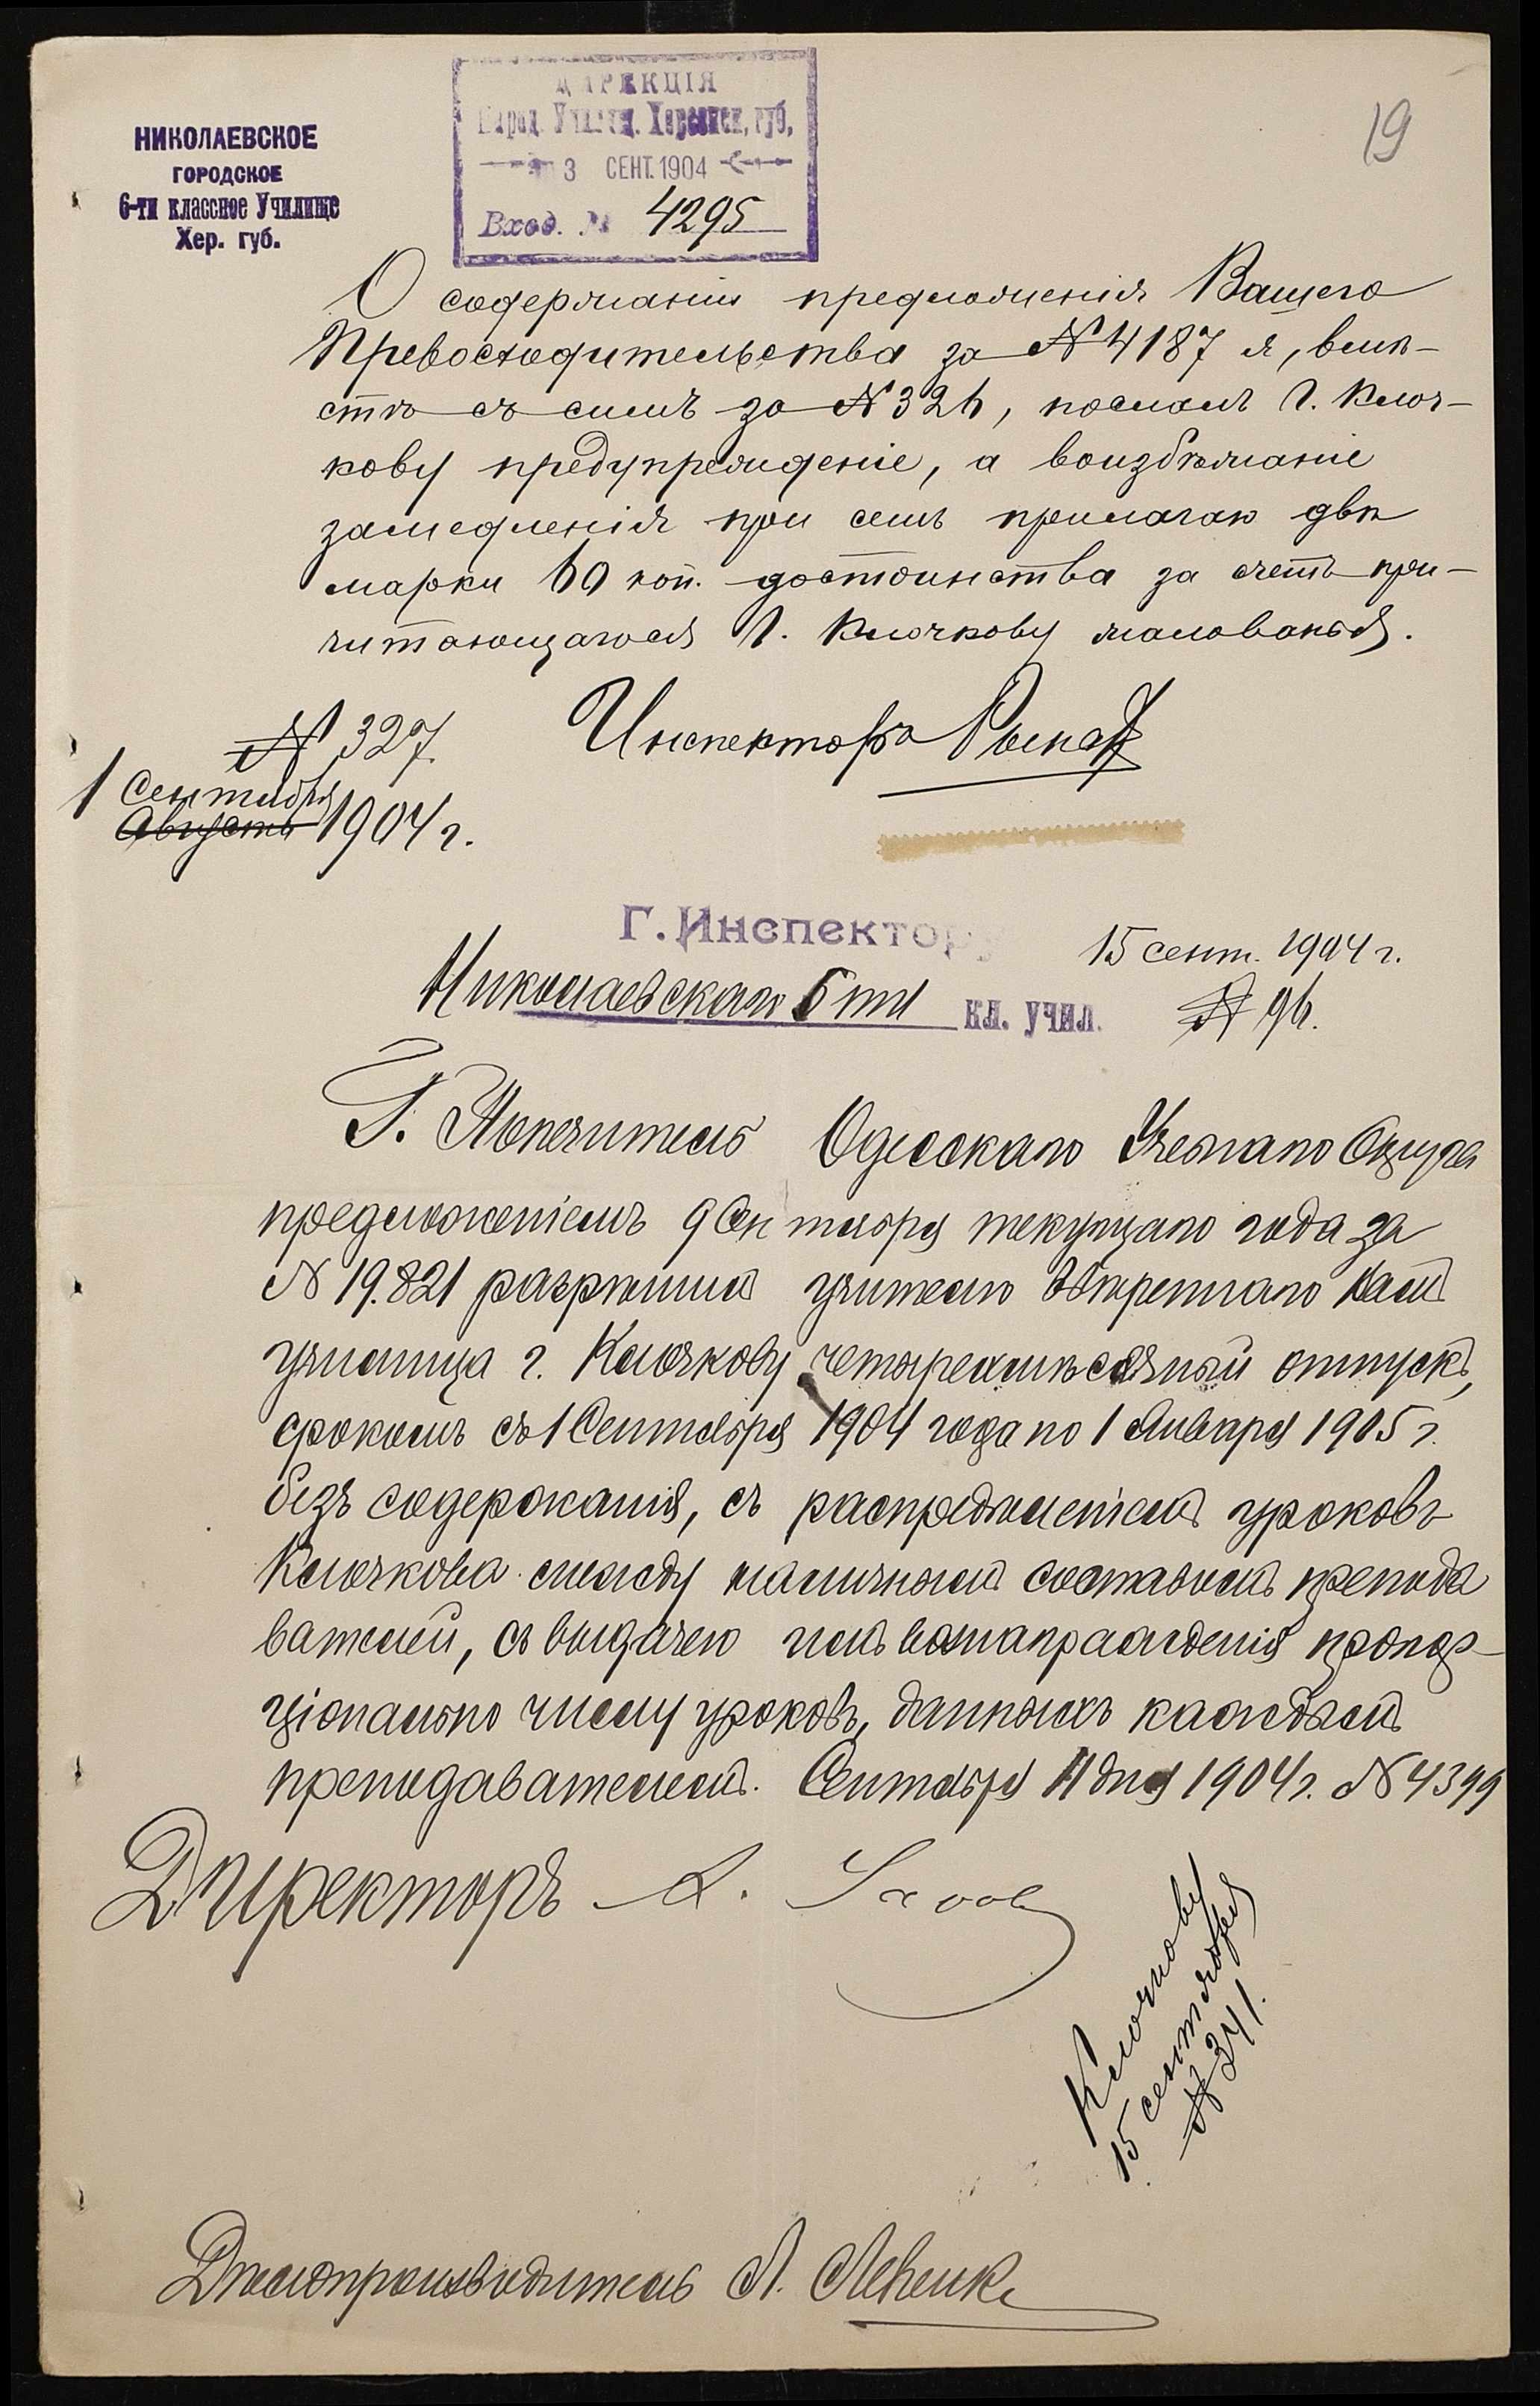 НИКОЛАЕВСКОЕ
ГОРОДСКОЕ
6-ти классное Училище
Хер. губ.
ДИРЕКЦІЯ
Народ. Училищ. Херсонск. губ.
3 СЕНТ. 1904
Вход. № 4295
19
О содержаніи предложенія Вашего
Превосходительства за № 4187 я, вмѣ-
стѣ съ симъ за № 326, послалъ Г. Ключ-
кову предупрежденіе, а воизбѣжаніе
замедленія при семъ прилагаю двѣ
марки 60 коп. достоинства за счетъ при-
читающагося Г. Ключкову жалованья.
№ 327.
Инспекторъ
1 Сентября
Августа 1904 г.
Г. Инспектору
15 сент. 1904 г.
Николаевскаго 6 ти кл. учил.
№ 96.
Г. Попечитель Одесскаго Учебнаго Округа
предложеніемъ 9 Сентября текущаго года за
№ 19.821 разрѣшилъ учителю ввѣреннаго Вамъ
училища г. Ключкову четырехмѣсячный отпускъ,
срокомъ съ 1 Сентября 1904 года по 1 Января 1905 г.
безъ содержанія, съ распредѣленіемъ уроковъ
Ключкова между наличнымъ составомъ препода
вателей, съ выдачею имъ вознагражденія пропор-
ціонально числу уроковъ, данныхъ каждымъ
преподавателемъ. Сентября 11 дня 1904 г. № 4399
Директоръ А.
Ключкову
15 сентября
№ 341.
Дѣлопроизводитель Л.